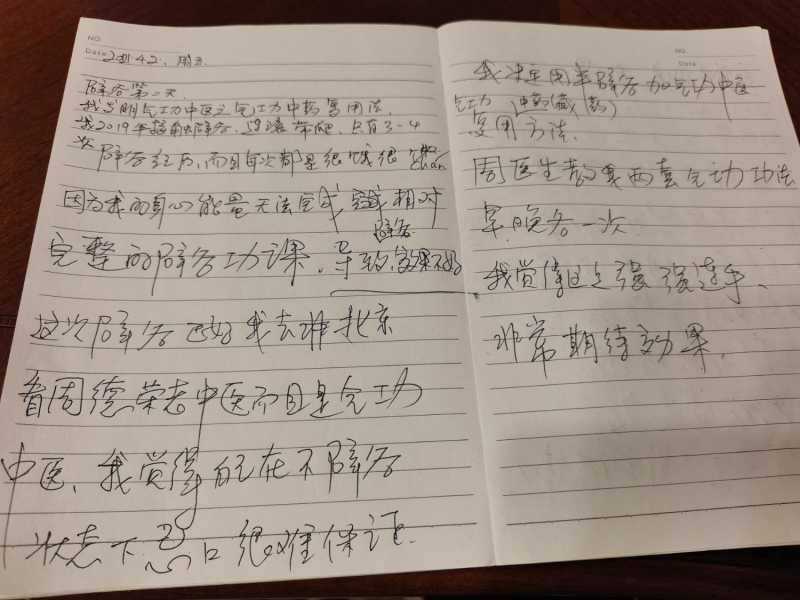 NO.
Date 2021 4.2. 周五
辟谷第二天
我发明气功中医之气功中药复用法
我2019年接触辟谷, 只有3-4
次辟谷经历, 而且每次都是很饿很
因为我的身心能量无法完成 相对
完整的辟谷功课, 导致辟谷效果不好
这次辟谷 正好我去 北京
看周德荣老中医而且是气功
中医, 我觉得 在不辟谷
状态下忌口很难保证.
NO.
Date
我决定用半辟谷加气功中医
气功 中药(藏)(药)
复用方法.
周医生教了我两套气功功法
早.晚各一次.
我觉得这是强强连手、
非常期待效果.